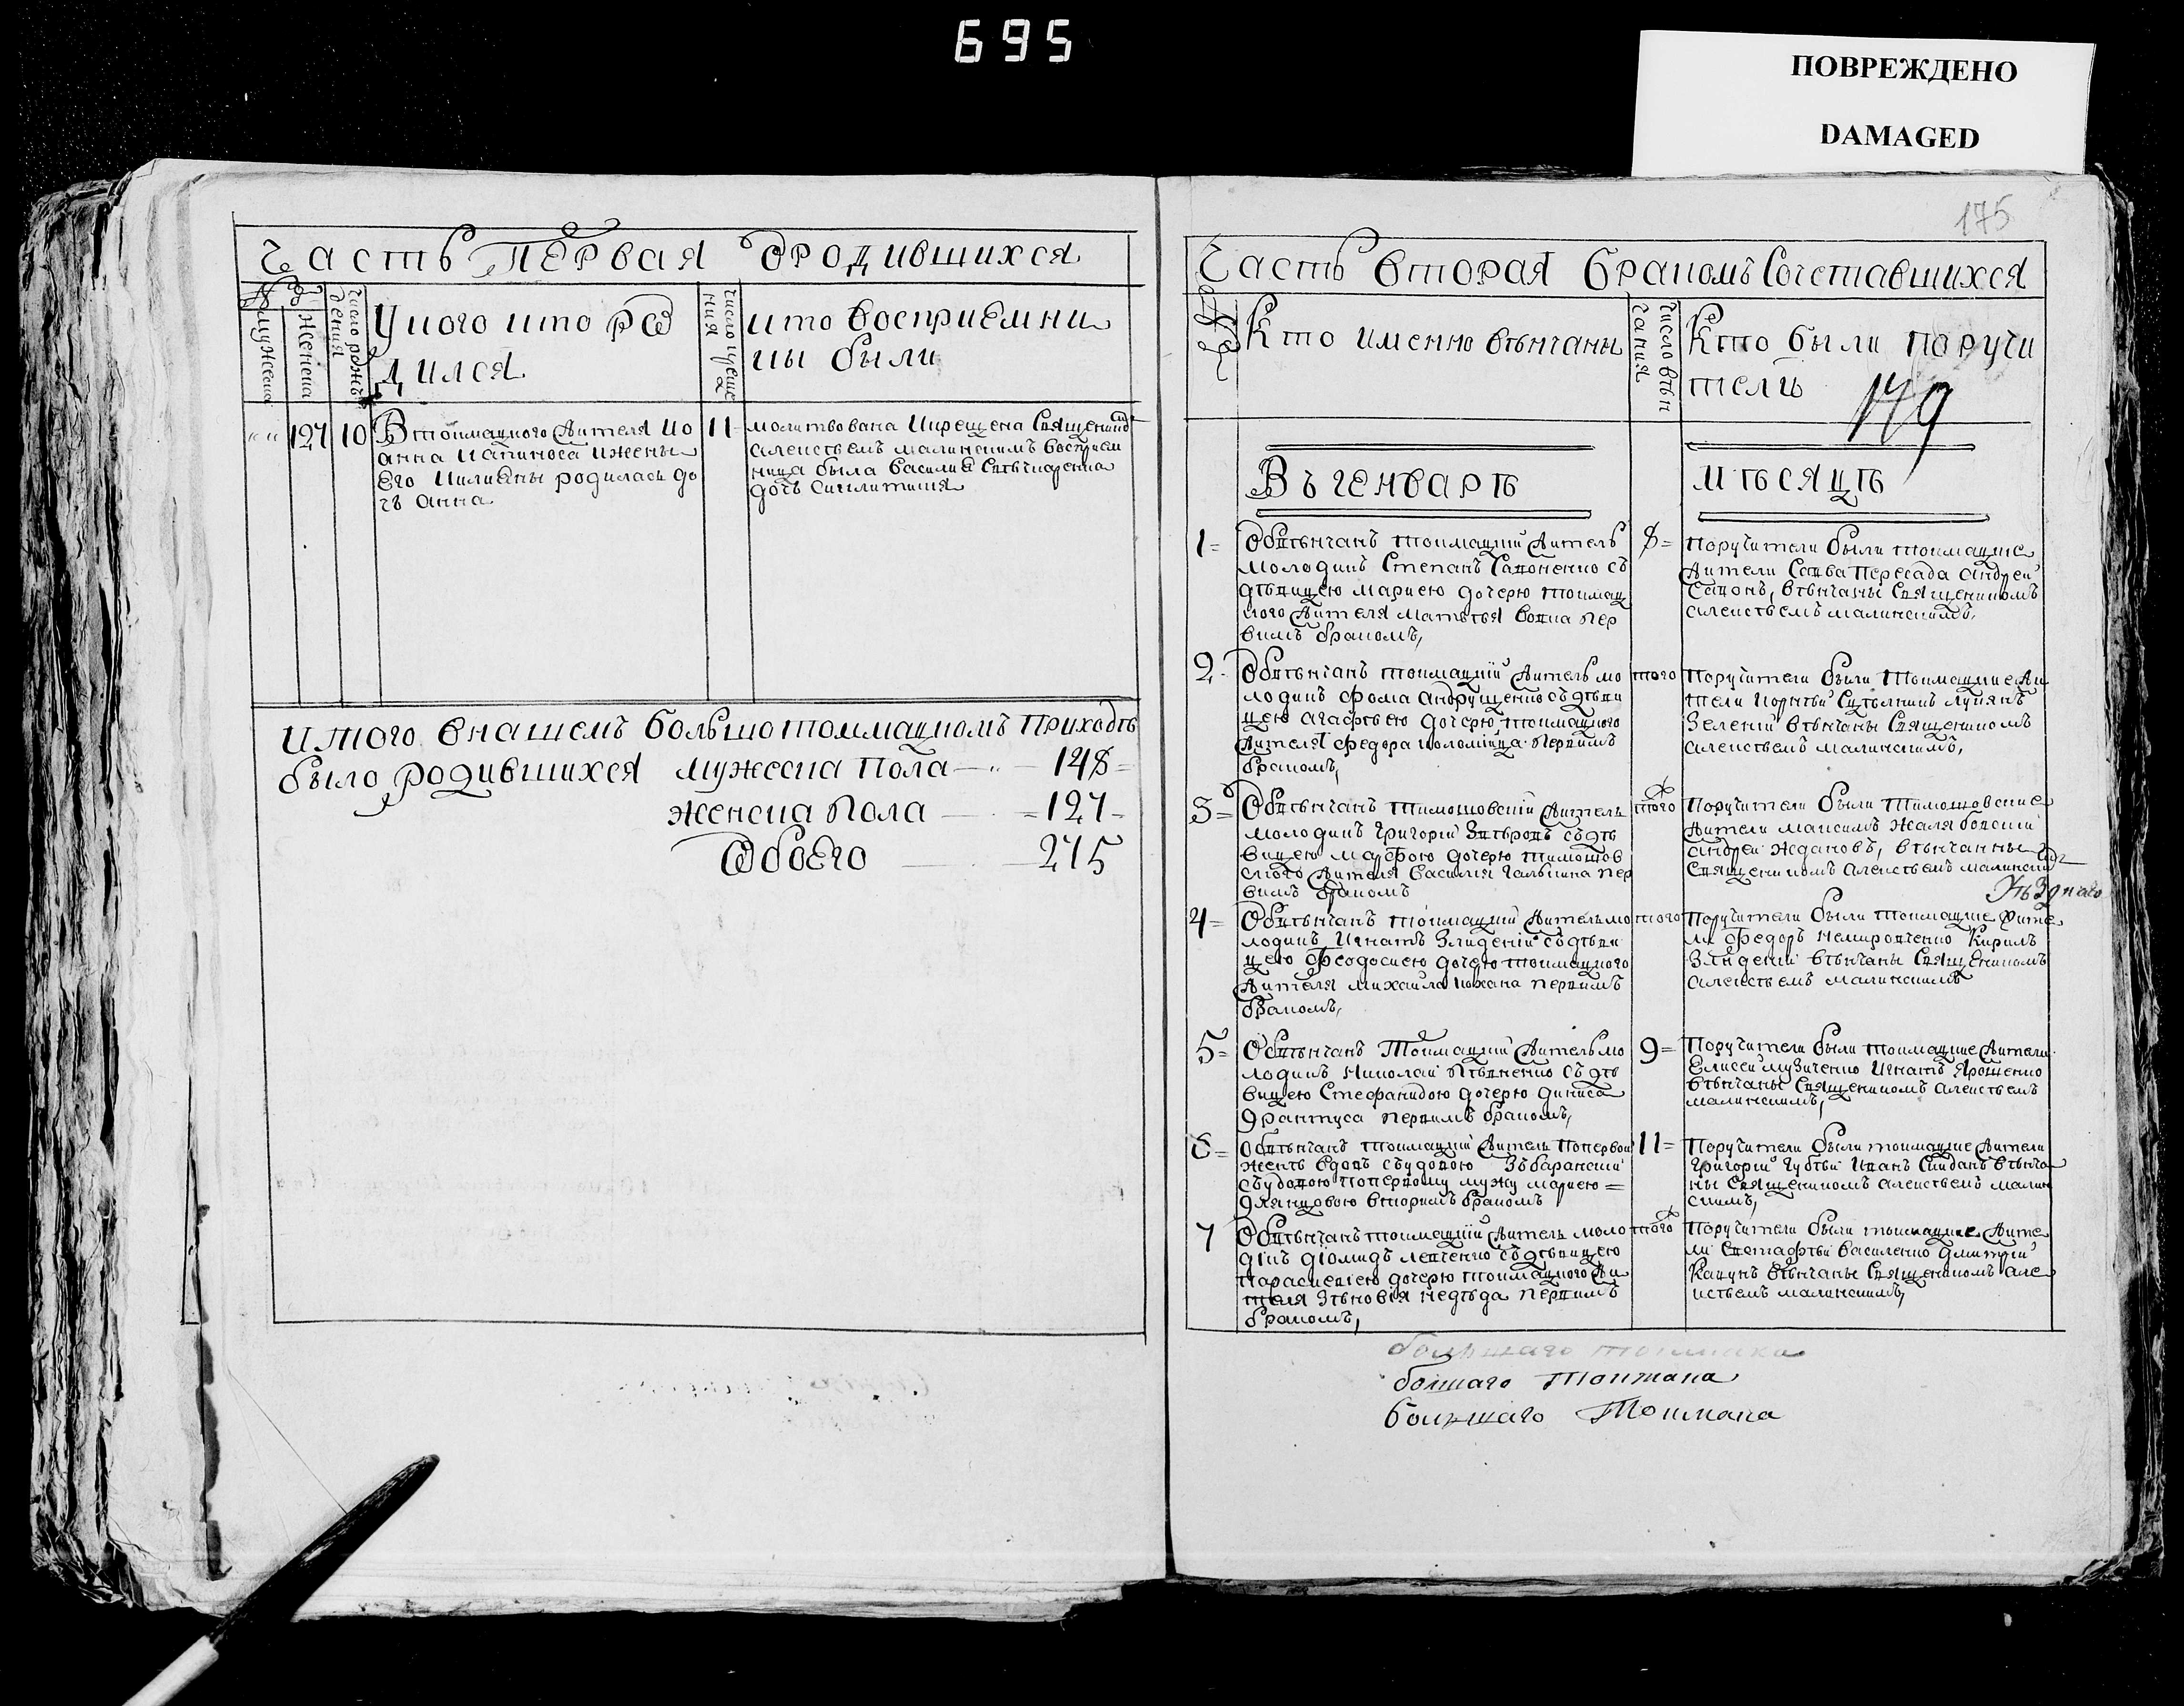 695
ПОВРЕЖДЕНО
DAMAGED
Часть Первая о родившихся
мужеска
женска
число рож
дения
У кого кто ро
дился
число креще
ния
кто восприемни
ки были
127
10
В токмацкого жителя Ио
анна и жены
его родилась до
чъ анна
11
молитвована и крещена священником
алексѣемъ малинскимъ восприем
ница была василия
дочь
итого в нашемъ большотокмацкомъ приходѣ
было родившихся мужеска пола 148
женска пола 127
обоего 275
175
Часть вторая бракомъ сочетавшихся
Кто именно вѣнчаны
число вѣн
чания
Кто были поручи
тели
179
Въ генварѣ
мѣсяцѣ
1
Обвѣнчанъ токмацкій житель
молодикъ Степанъ Сапоненко съ
дѣвицею мариею дочерю токмац
кого жителя матвѣя вовка пер
вимъ бракомъ,
8
Поручители были токмацкие
жители Савва Пересада андрей
Сапонъ, вѣнчаны священикомъ
алексѣемъ малинскимъ,
2
Обвѣнчанъ токмацкій житель мо
лодикъ фома андрущенко съ дѣви
цею агафѣею дочерю токмацкого
жителя федора коломійца первимъ
бракомъ,
того
Поручители были токмацкие жи
тели лукянъ
Зелений вѣнчаны священикомъ
алексѣемъ малинскимъ,
3
Обвѣнчанъ тимошовскій житель
молодикъ григорій Звѣровъ съ дѣ
вицею марфою дочерю тимошов
ского жителя василия галкина пер
вимъ бракомъ
того
Поручители были тимошовские
жители максимъ жалябовский
андрей ждановъ, вѣнчанны
священикомъ алексѣемъ малинским
4
Обвѣнчанъ токмацкій житель мо
лодикъ игнатъ Злиденій съ дѣви
цею феодосиею дочерю токмацкого
жителя михаила кохана первимъ
бракомъ,
того
Поручители были токмацкие жите
ли федоръ немировченко Кирилъ
Злидений вѣнчаны священикомъ
алексѣемъ малинскимъ
5
Обвѣнчанъ Токмацкий житель мо
лодикъ николай пѣвненко съ дѣ
вицею Стефанидою дочерю диниса
дрантуса первимъ бракомъ,
9
Поручители были токмацкие жители
Елисей музиченко игнатъ ярошенко
вѣнчаны священикомъ алексѣемъ
малинскимъ,
6
Обвѣнчанъ токмацкий житель по первой
женѣ вдовъ съ удовою Збаранский
съ удовою по первому мужу мариею
вторимъ бракомъ
11
Поручители были токмацкие жители
григорій губѣй иванъ Сииданъ вѣнча
ны священикомъ алексѣемъ малин
скимъ,
7
Обвѣнчанъ токмацкій житель моло
дікъ діомидъ левченко съ дѣвицею
параскевіею дочерю токмацкого жи
теля Зѣновія недѣда первимъ
бракомъ,
того
Поручители были токмацкие жите
ли евстафѣй василенко дмитрий
Капунъ вѣнчаны священикомъ але
ксѣемъ малинскимъ,
большаго токмака
болшаго Токмака
большаго Токмака